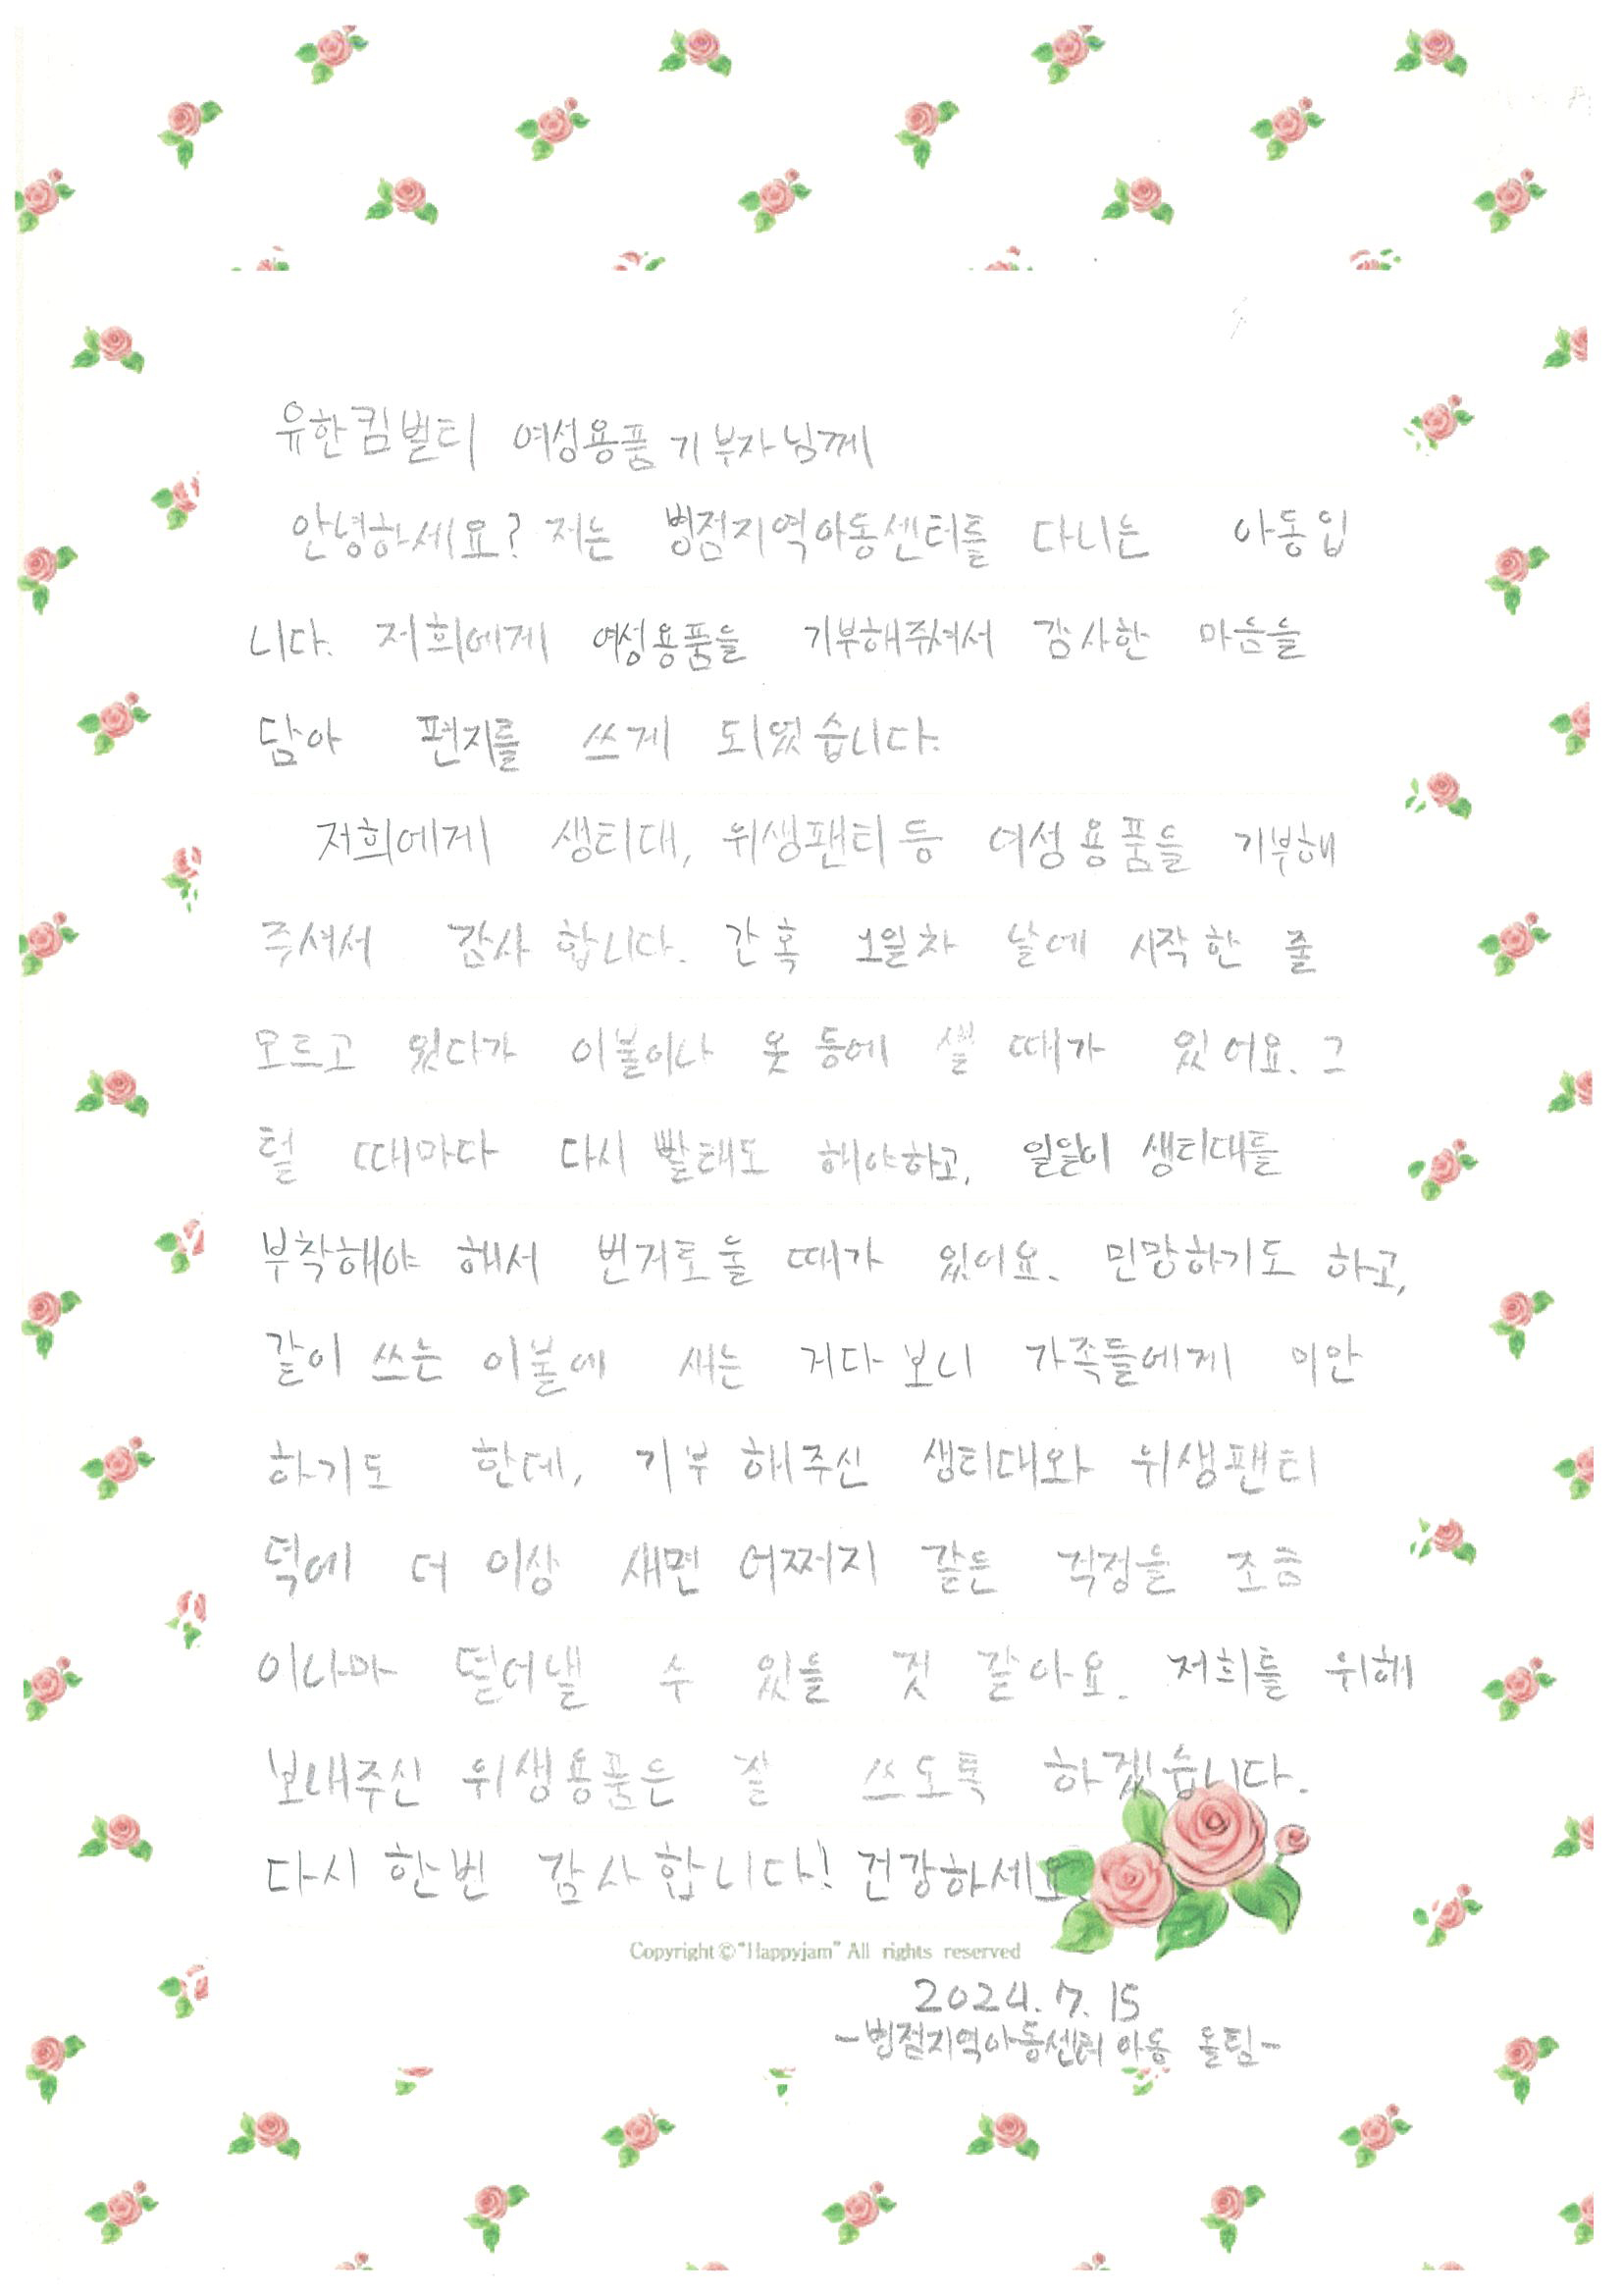 유한킴벌리 여성용품 기부자님께
안녕하세요? 저는 병점지역아동센터를 다니는 아동입
니다. 저희에게 여성용품을 기부해주셔서 감사한 마음을
담아 편지를 쓰게 되었습니다.
저희에게 생리대, 위생팬티 등 여성용품들 기부해
주셔서 감사합니다. 간혹 1일차 날에 시작한 줄
모르고 있다가 이불이나 옷 등에 샐 때가 있어요. 그
럴 때마다 다시 빨래도 해야하고, 일일이 생리대를
부착해야 해서 번거로울 때가 있어요. 민망하기도 하고,
같이 쓰는 이불에 새는 거다 보니 가족들에게 미안
하기도 한데, 기부 해주신 생리대와 위생팬티
덕에 더 이상 새면 어쩌지 같은 걱정을 조금
이나마 덜어낼 수 있을 것 같아요. 저희를 위해
보내주신 위생용품은 잘 쓰도록 하겠습니다.
다시 한번 감사합니다! 건강하세요
Copyright © "Happyjam" All rights reserved
2024. 7. 15
-병점지역아동센터 아동 올림-